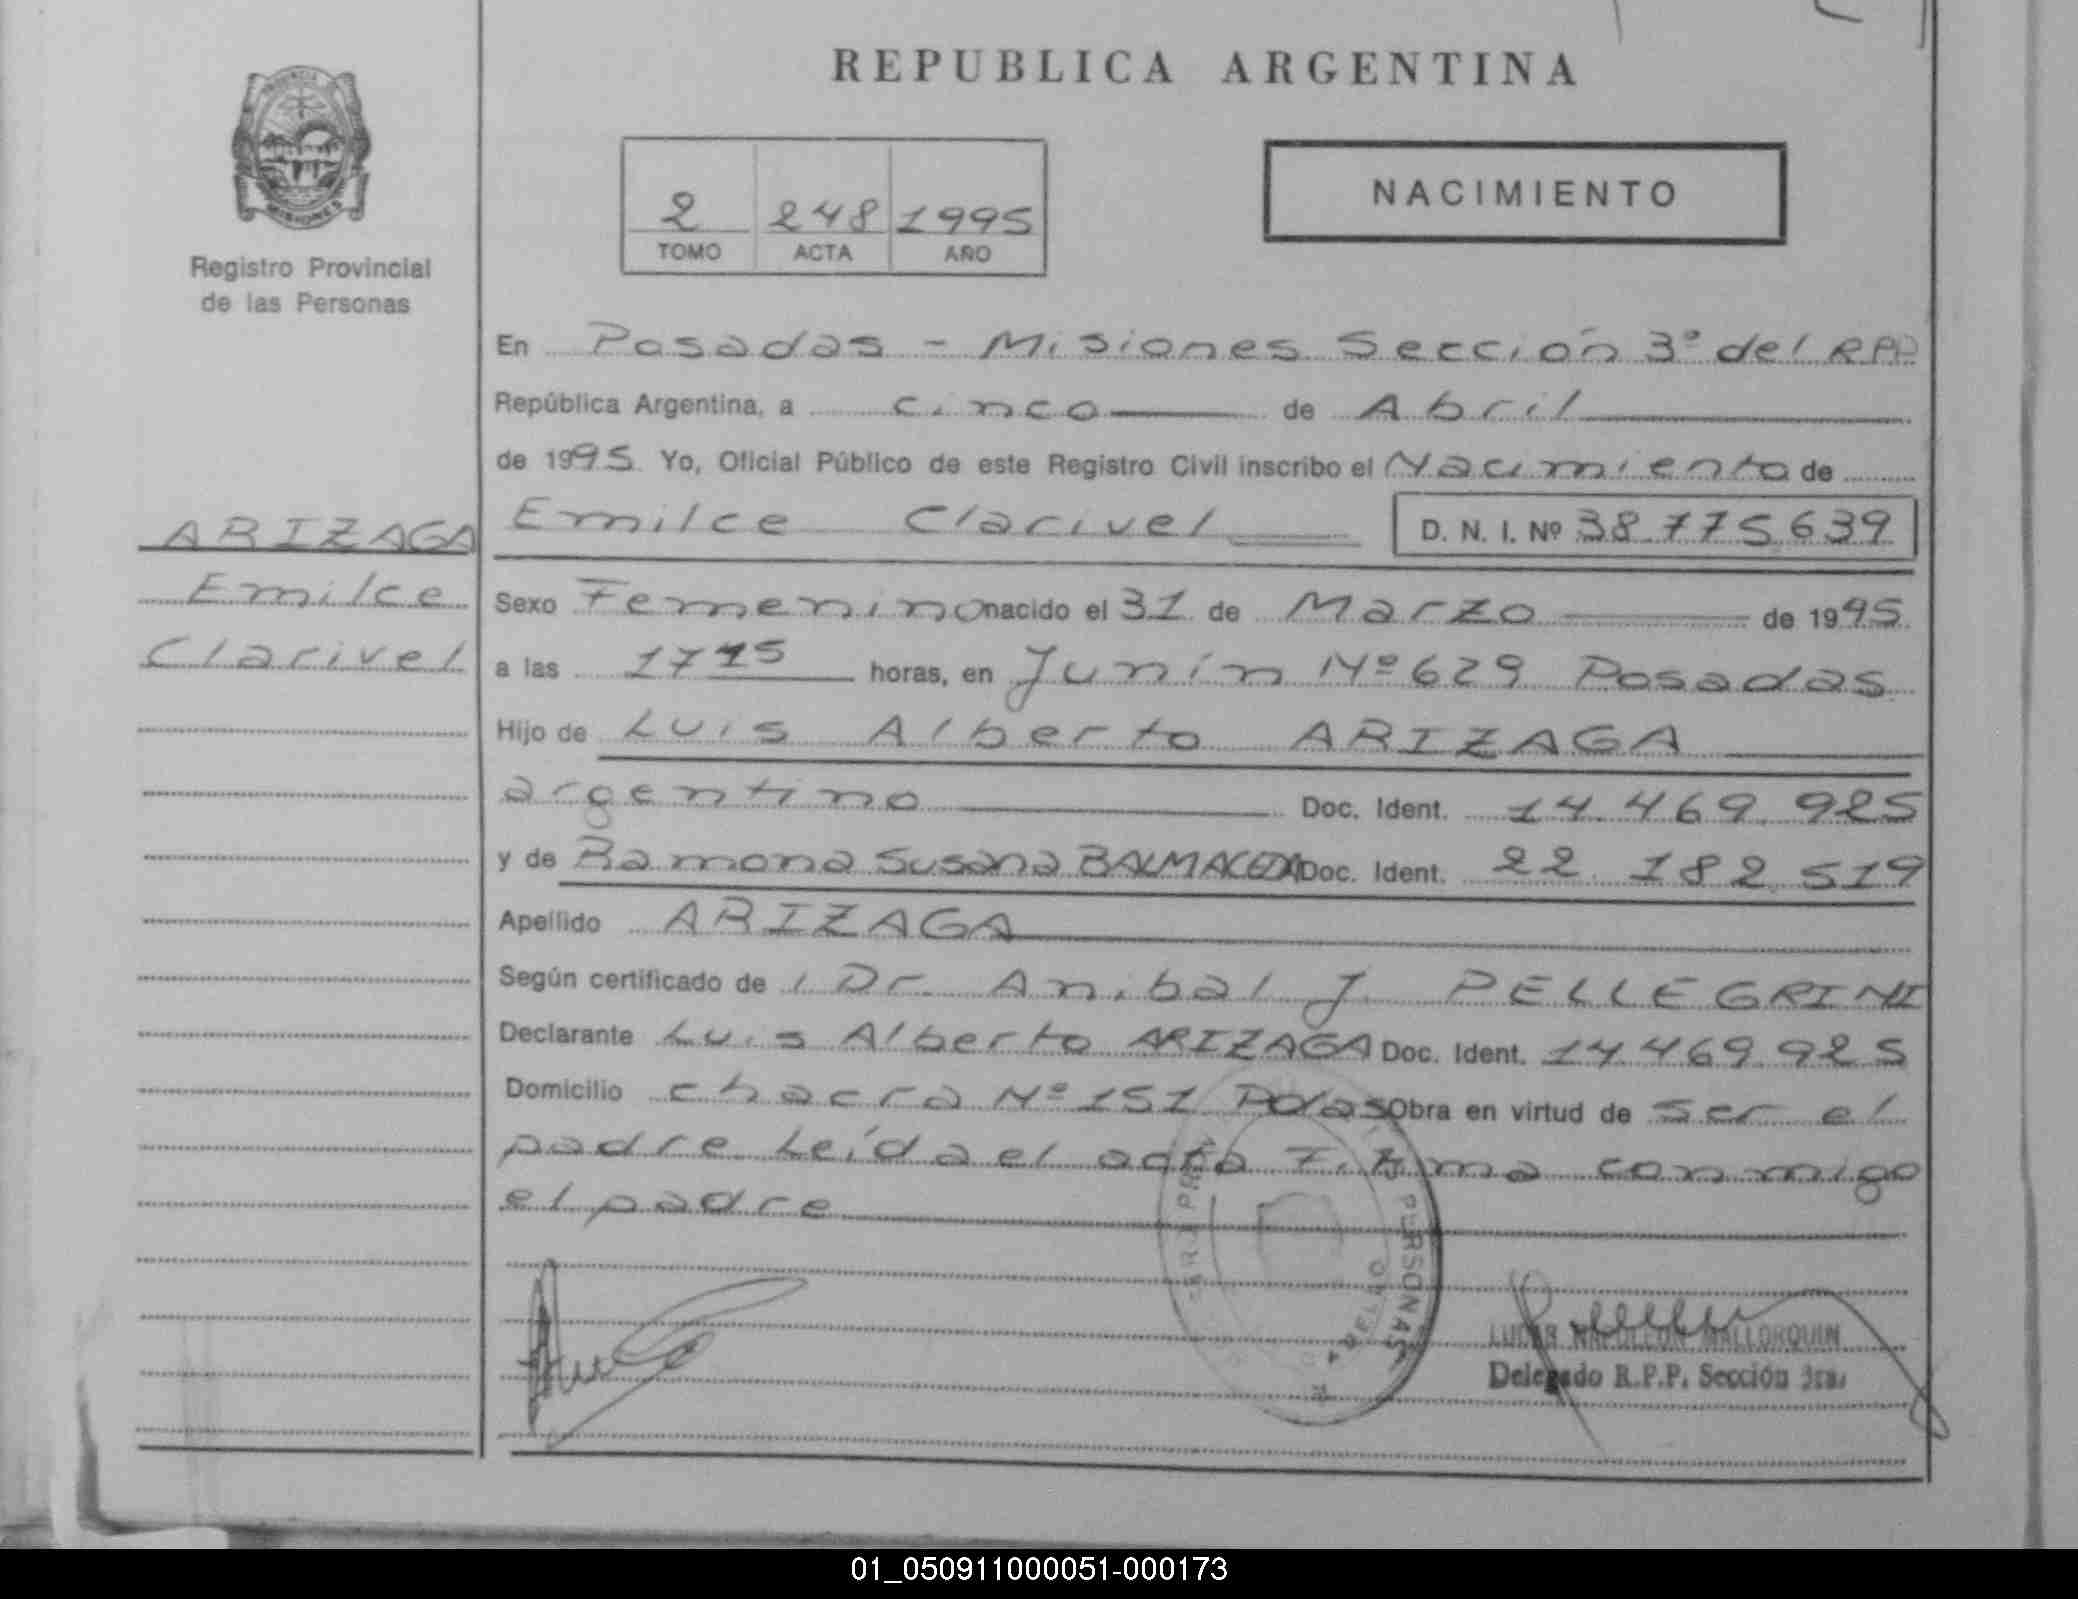 REPUBLICA ARGENTINA
PROVINCIA
MISIONES
Registro Provincial
de las Personas
2 248 1995
TOMO ACTA AÑO
NACIMIENTO
En Posadas - Misiones Sección 3º del RPP
República Argentina, a cinco de Abril
de 1995. Yo, Oficial Público de este Registro Civil inscribo el Nacimiento de
ARIZAGA
Emilce Clarivel D. N. I. Nº 38.775.639
Emilce
Clarivel
Sexo Femenino nacido el 31 de Marzo de 1995.
a las 1715 horas, en Junín Nº 629 Posadas
Hijo de Luis Alberto ARIZAGA
argentino Doc. Ident. 14.469.925
y de Ramona Susana BALMACEDA Doc. Ident. 22.182.519
Apellido ARIZAGA
Según certificado de Dr. Anibal J. PELLEGRINI
Declarante Luis Alberto ARIZAGA Doc. Ident. 14.469.925
Domicilio chacra Nº 151 Pdas Obra en virtud de ser el
padre Leída el acta Firma conmigo
el padre
PERSONAS
NAPOLEON MALLORQUIN
Delegado R.P.P. Sección 3ra.
01_050911000051-000173